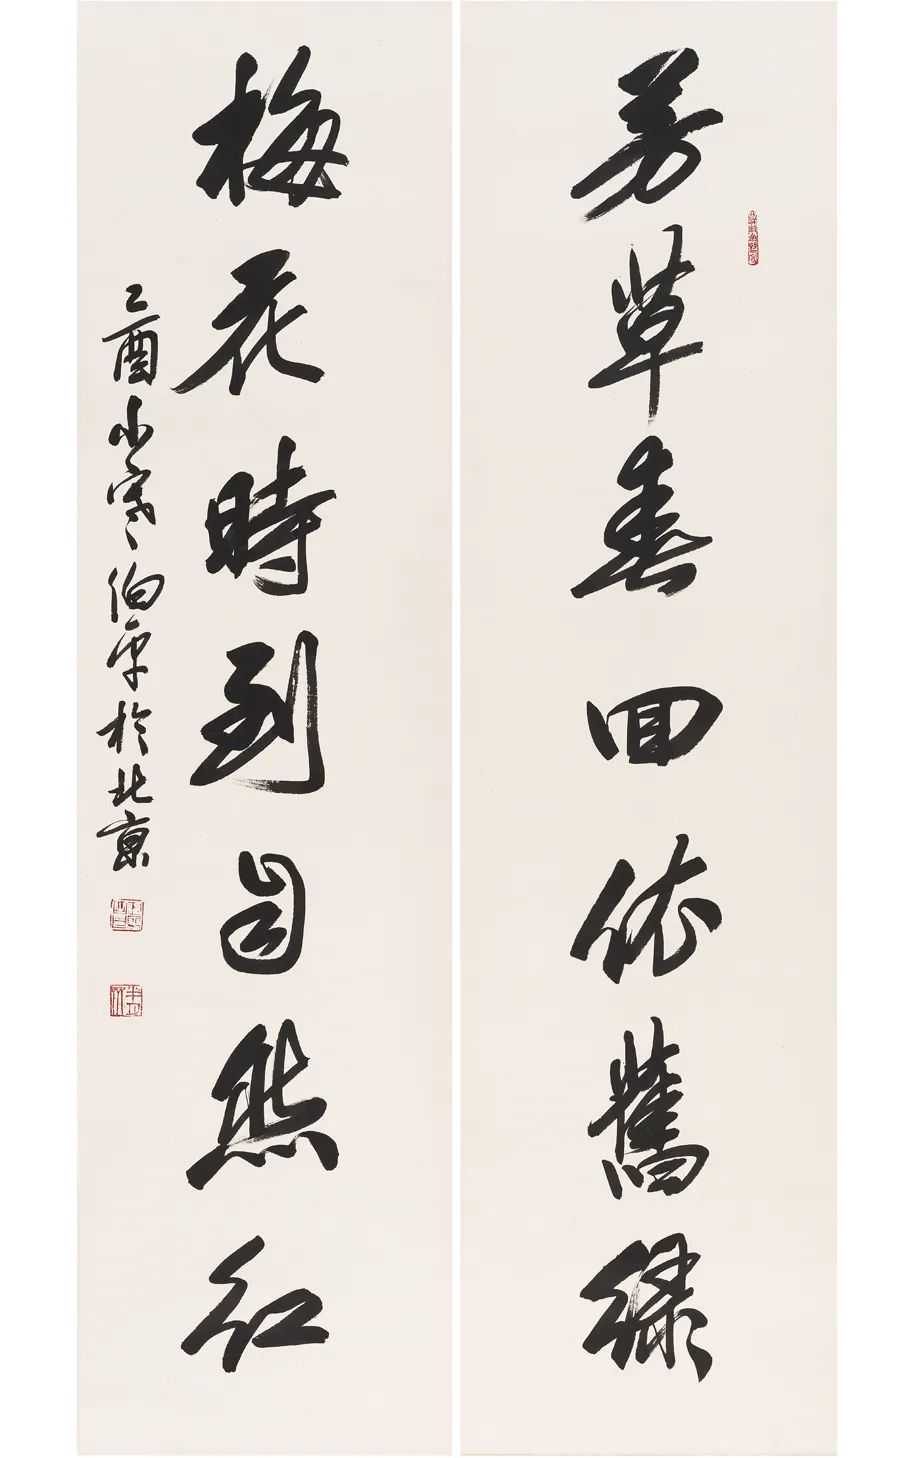 芳草春回依舊綠
梅花時到自然紅
乙酉小寒伯平於北京